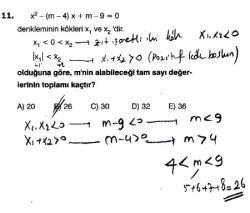 11. x² – (m – 4) x + m – 9 = 0
denkleminin kökleri x₁ ve x₂ 'dir.
x₁ < 0 < x₂ → zıt işaretli iki kök x₁.x₂<0
|x₁| < x₂ → x₁+x₂>0 (pozitif kök baskın)
-1 +2
olduğuna göre, m'nin alabileceği tam sayı değer-
lerinin toplamı kaçtır?
A) 20 B) 26 C) 30 D) 32 E) 36
x₁.x₂<0 → m-9<0 → m<9
x₁+x₂>0 → m-4>0 → m>4
4<m<9
5+6+7+8=26